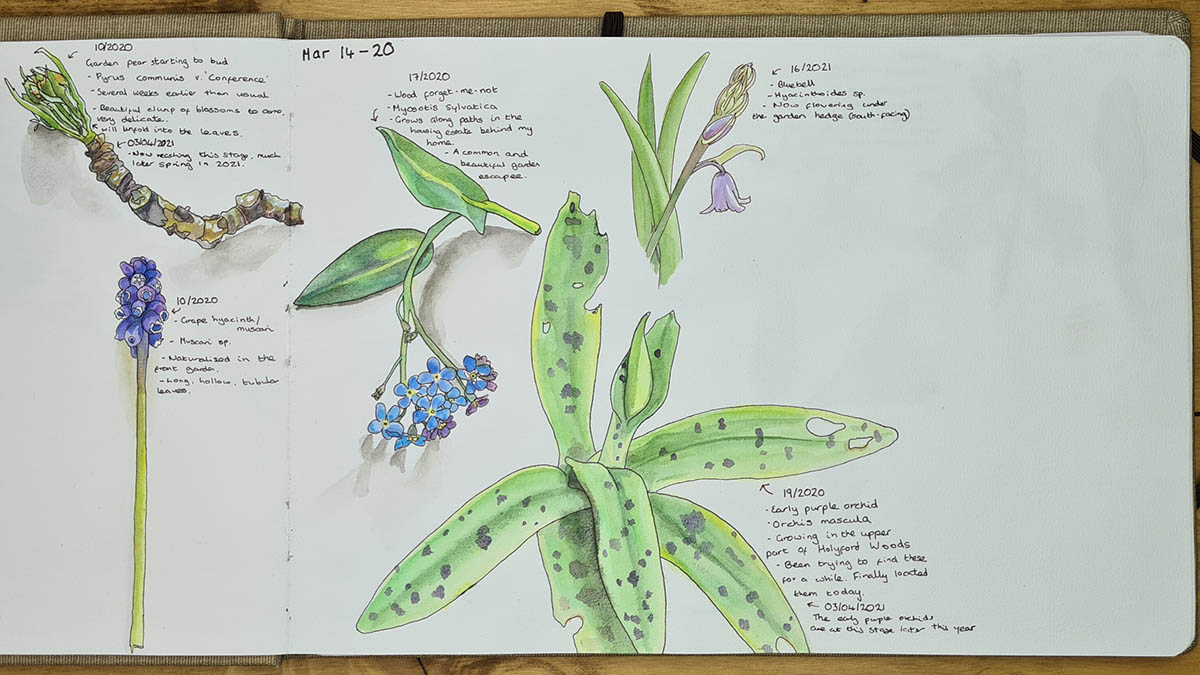 10/2020
Garden pear starting to bud
- Pyrus communis v. 'Conference'
- Several weeks earlier than usual
- Beautiful clump of blossoms to come,
very delicate.
will unfold into the leaves.
03/04/2021
- Now reaching this stage, much
later spring in 2021.
10/2020
- Grape hyacinth/
muscari
- Muscari sp.
- Naturalised in the
front garden.
- Long, hollow, tubular
leaves.
Mar 14-20
17/2020
- Wood forget-me-not
- Myosotis sylvatica
- Grows along paths in the
housing estate behind my
home.
- A common and
beautiful garden
escapee.
16/2021
- Bluebell
- Hyacinthoides sp.
- Now flowering under
the garden hedge (south-facing)
19/2020
- Early purple orchid
- Orchis mascula
- Growing in the upper
part of Holyford Woods
- Been trying to find these
for a while. Finally located
them today.
03/04/2021
The early purple orchids
are at this stage later this year